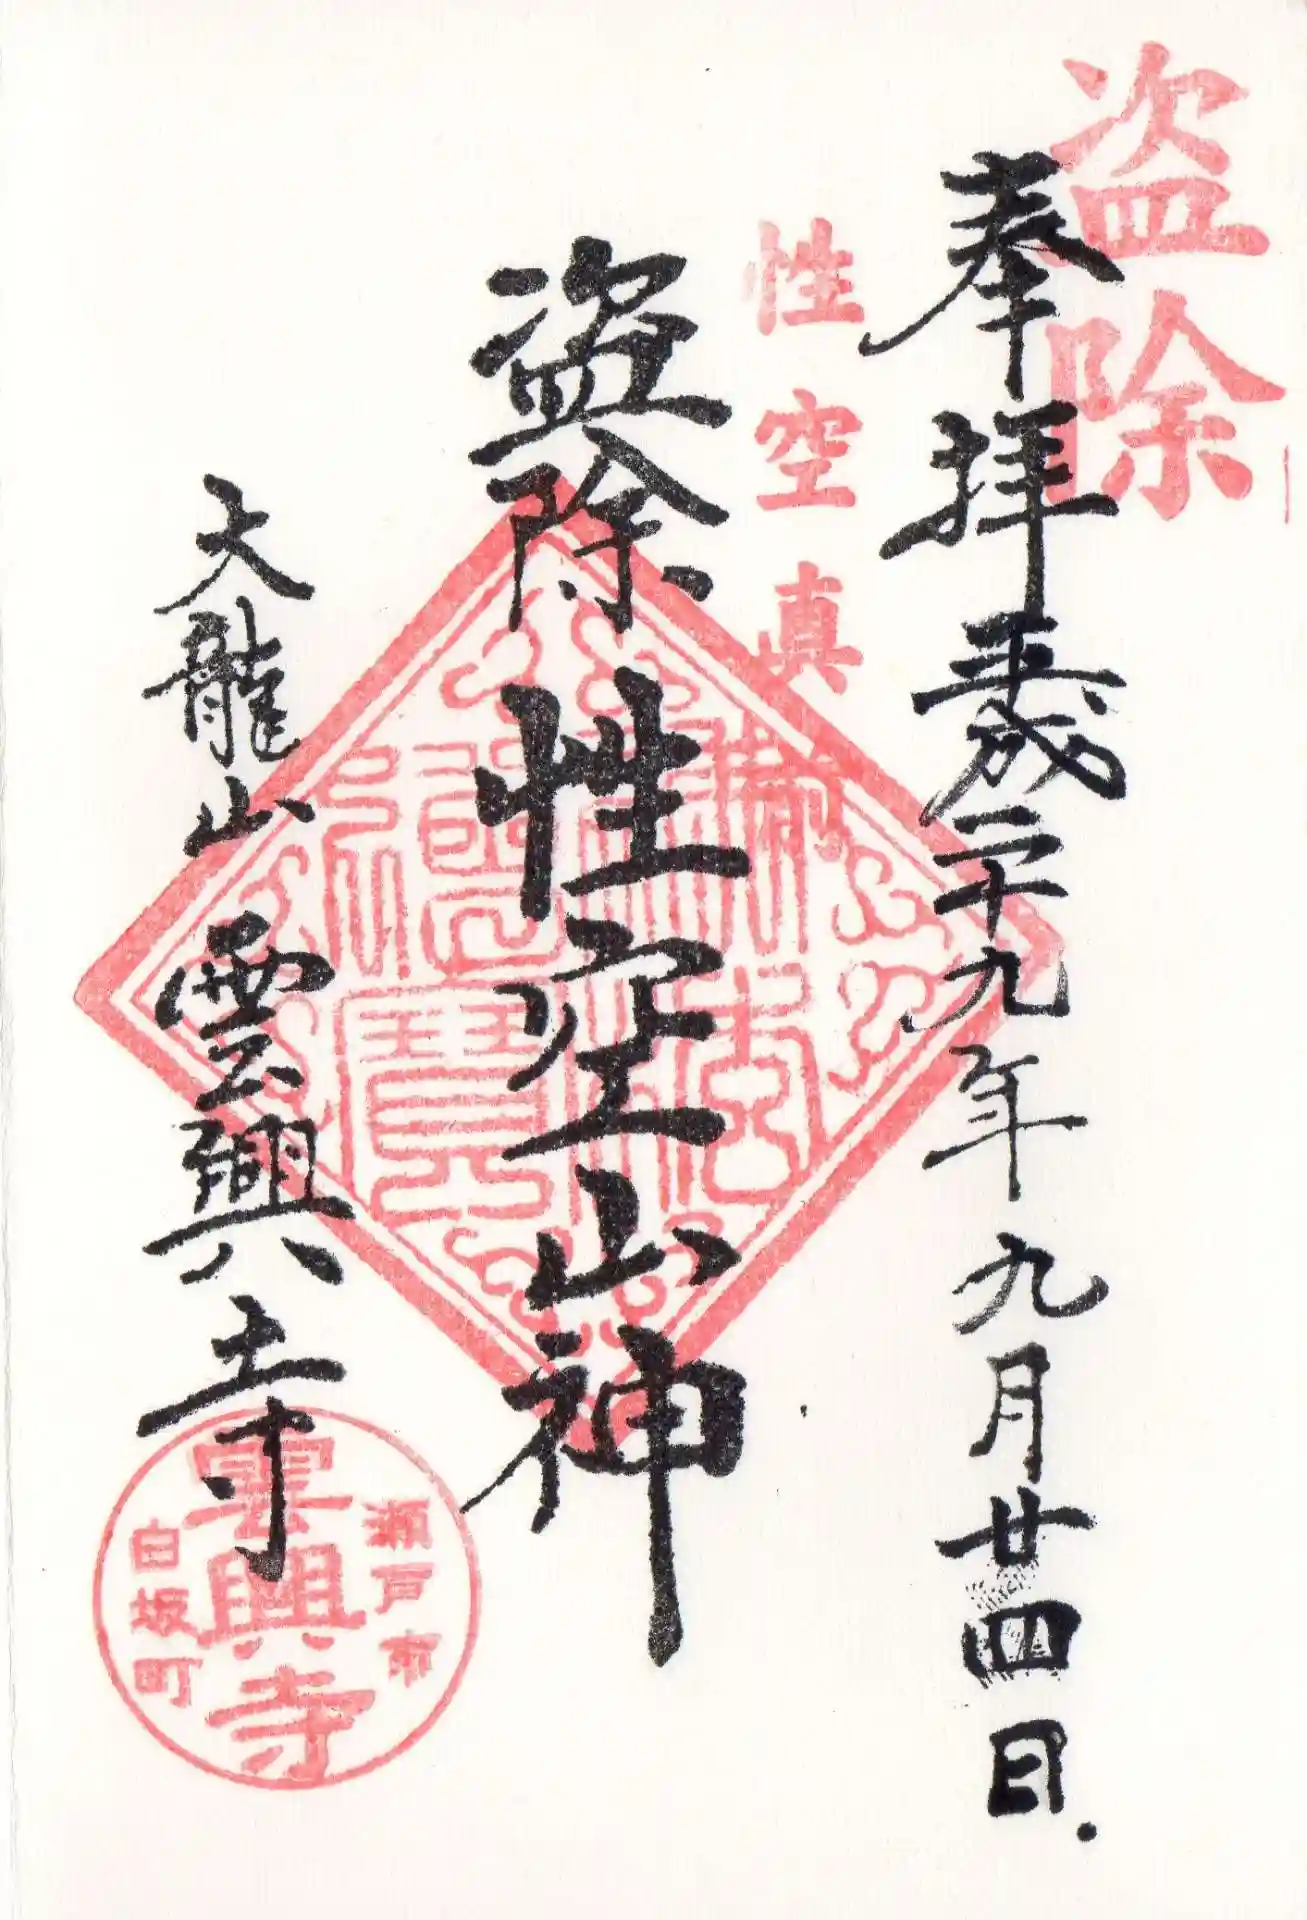 盗除
奉拝 平成二十九年 九月廿四日
性空真
盗除 性空山神
大龍山 雲興寺
瀬戸市
雲興寺
白坂町